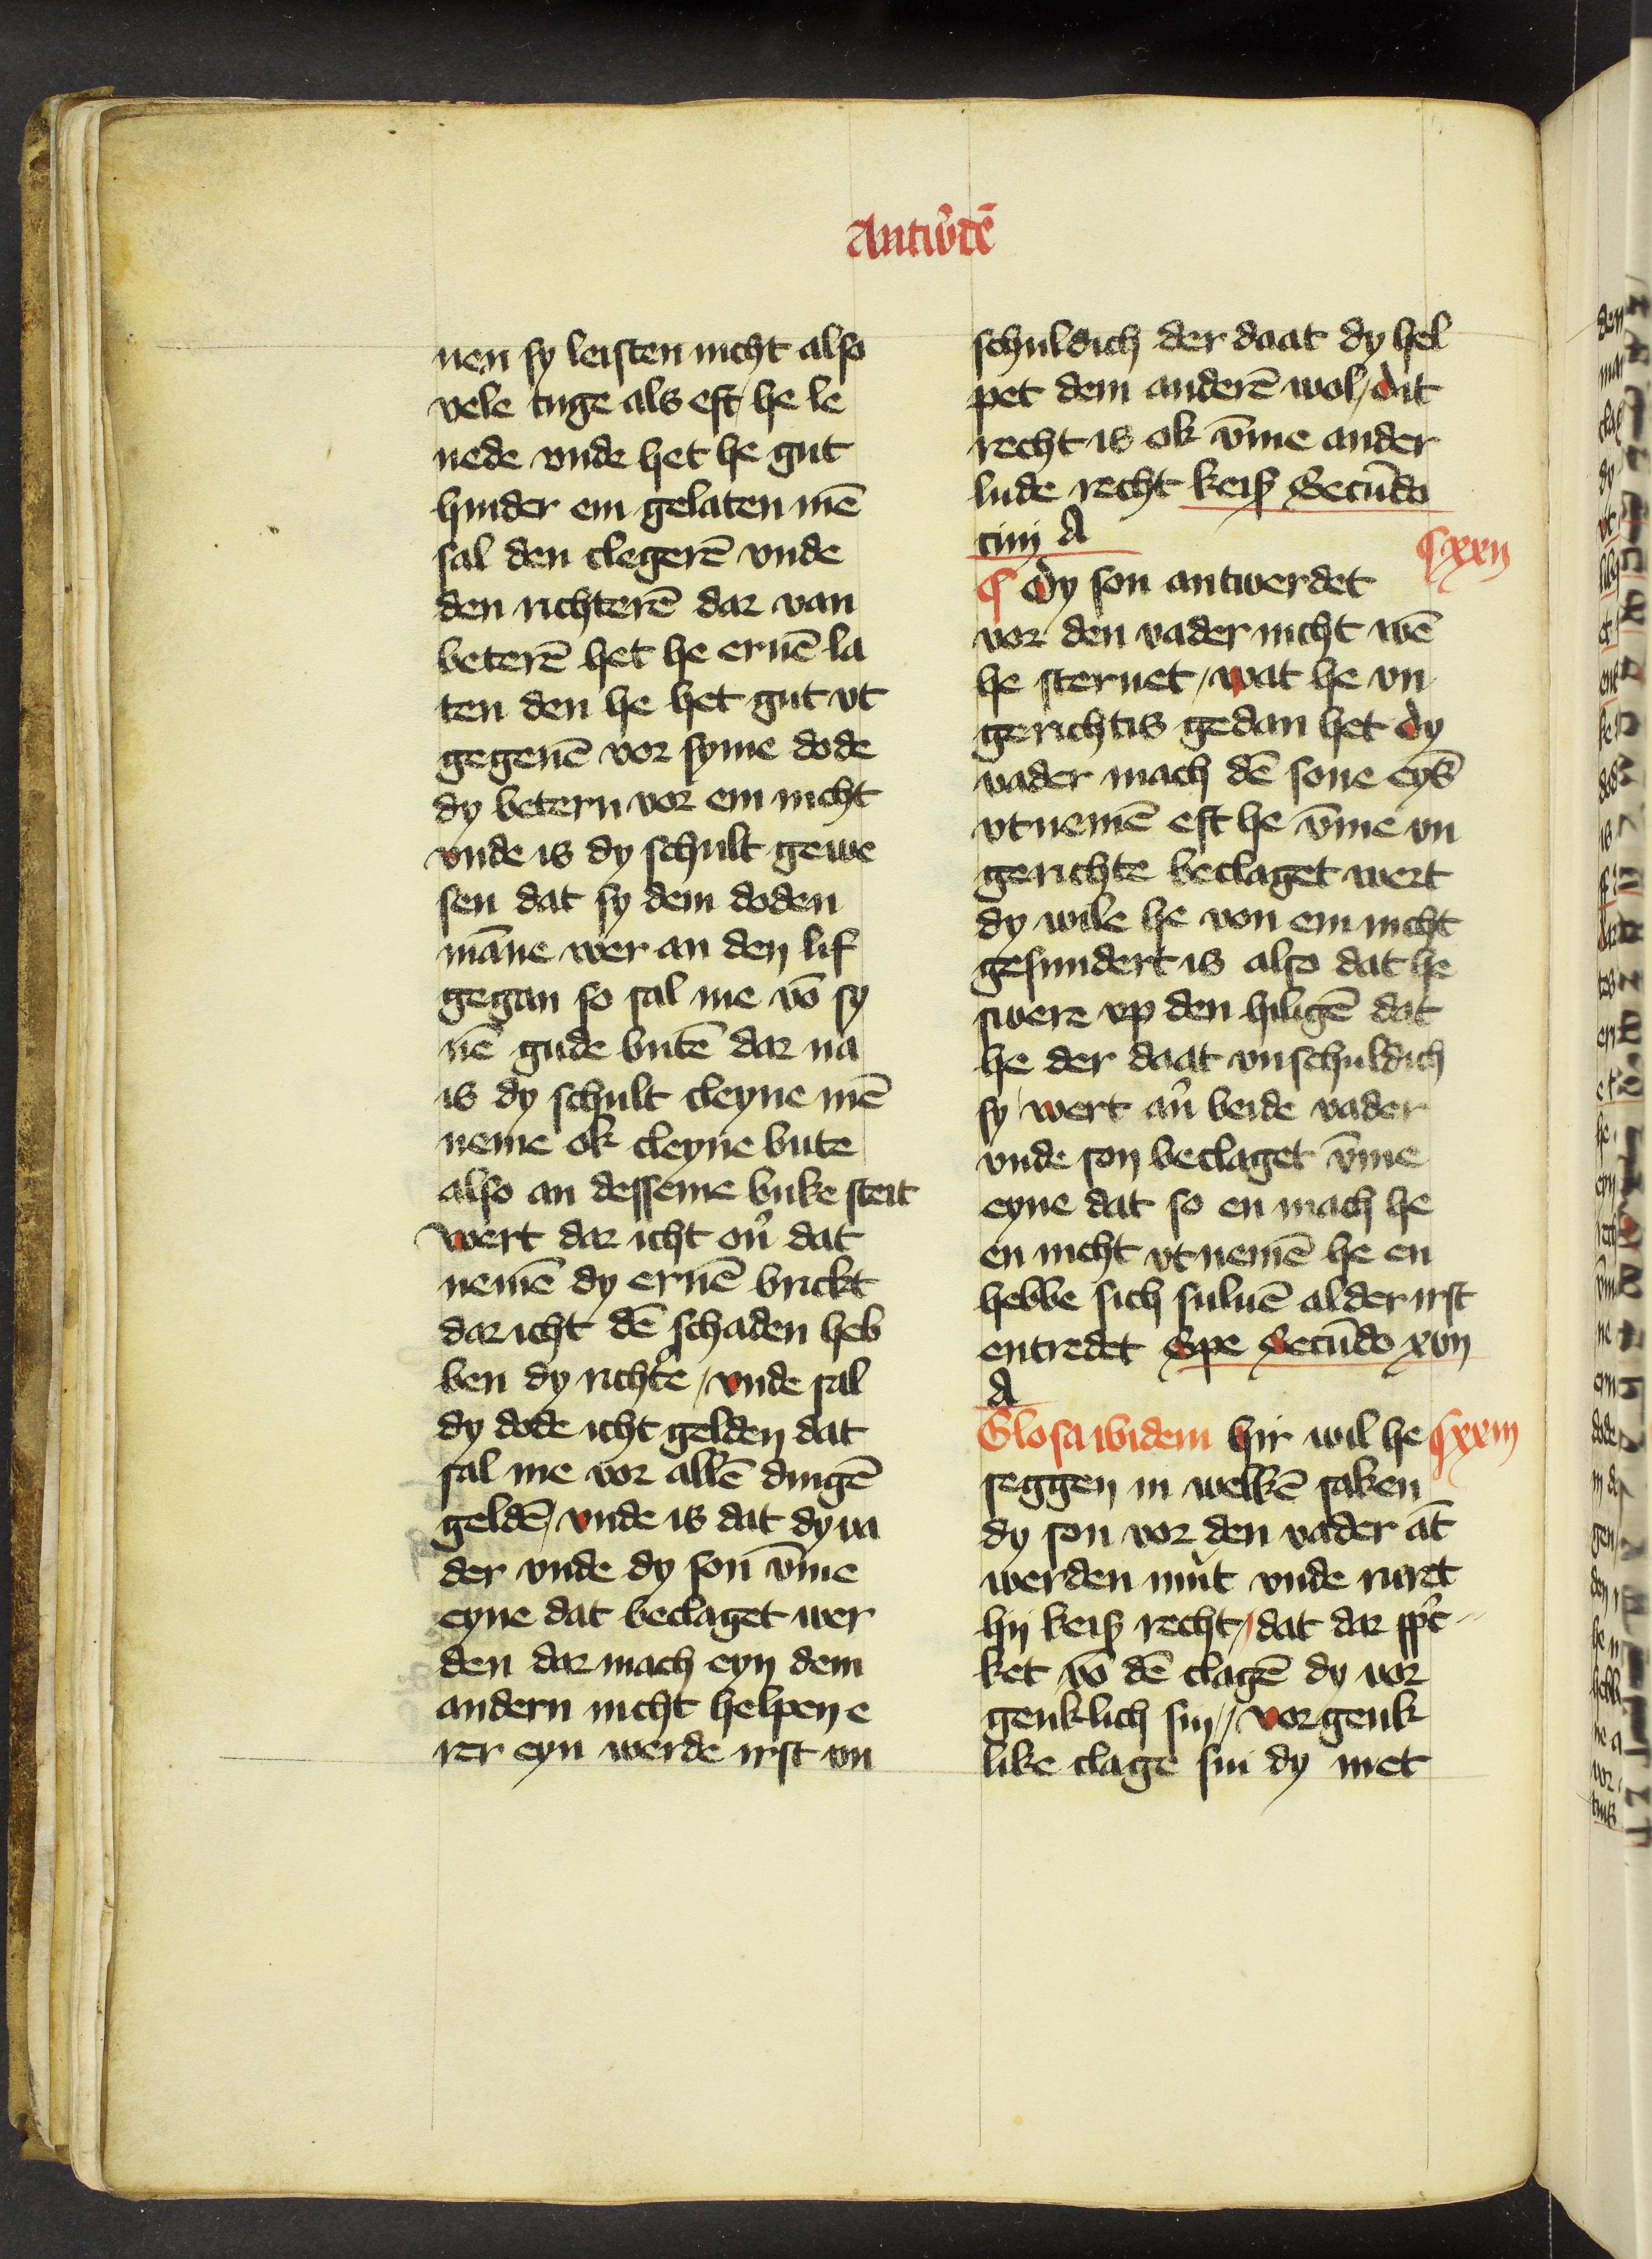 Antw'dē
uen sy leisten nicht also
vele tuge als eft / he le
uede vnde het he gut
hinder em gelaten mē
sal den clegerē vnde
den richterē dar van
beterē het he eruē la
ten den he het gut vt
gegeuē vor syme dode
dy betern vor em nicht
vnde is dy schult gewe
sen dat sy dem doden
māne wer an den lif
gegan so sal me vō sy
nē gude butē dar na
is dy schult cleyne mē
neme ok cleyne bute
also an desseme buke steit
wert dar icht ou' dat
nemē dy eruē brickt
dar icht dē schaden heb
ben dy richt'e / vnde sal
dy dode icht gelden dat
sal me vor allē dingē
geldē / vnde is dat dy va
der vnde dy son vm̄e
eyne dat beclaget wer
den dar mach eyn dem
andern nicht helpen e
rer eyn werde irst vn
schuldich der daat dy hel
pet dem anderē wol / dit
recht is ok vm̄e ander
lude recht keiß Secūdo
ciiij A
¶ Dy son antwerdet
¶ xxij
vor den vader nicht wē
he steruet / wat he vn
gerichtis gedan het dy
vader mach dē sone eyß
vtnemē eft he vm̄e vn
gerichte beclaget wert
dy wile he von em nicht
gesundert is also dat he
swere vp den hiligē dat
he der daat vnschuldich
sy / wert au' beide vader
vnde son beclaget vm̄e
eyne dat so en mach he
en nicht vtnemē he en
hebbe sich suluē alder irst
entredet Spe Secūdo xvij
A
Glosa ibidem hir wil he
¶ xxiij
seggen in welkē saken
dy son vor den vader āt
werden mut vnde ruret
hij keiß recht / dat dar sp'c
ket vō dē clagē dy vor
genklich sin // vorgenk
like clage sin dy met